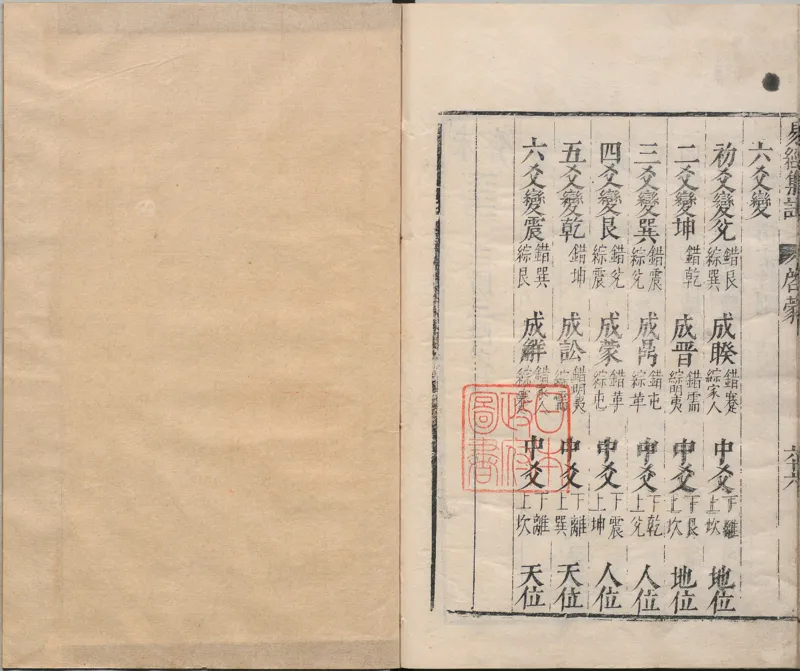 易經集註 啓蒙
六爻變
初爻變兊 錯艮 綜巽 成睽 錯蹇 綜家人 中爻 下離 上坎 地位
二爻變坤 錯乾 成晋 錯需 綜明夷 中爻 下艮 上坎 地位
三爻變巽 錯震 綜兊 成鼎 錯屯 綜革 中爻 下乾 上兊 人位
四爻變艮 錯兊 綜震 成蒙 錯革 綜屯 中爻 下震 上坤 人位
五爻變乾 錯坤 成訟 錯明夷 綜需 中爻 下離 上巽 天位
六爻變震 錯巽 綜艮 成解 錯家人 綜蹇 中爻 下離 上坎 天位
日本政府圖書